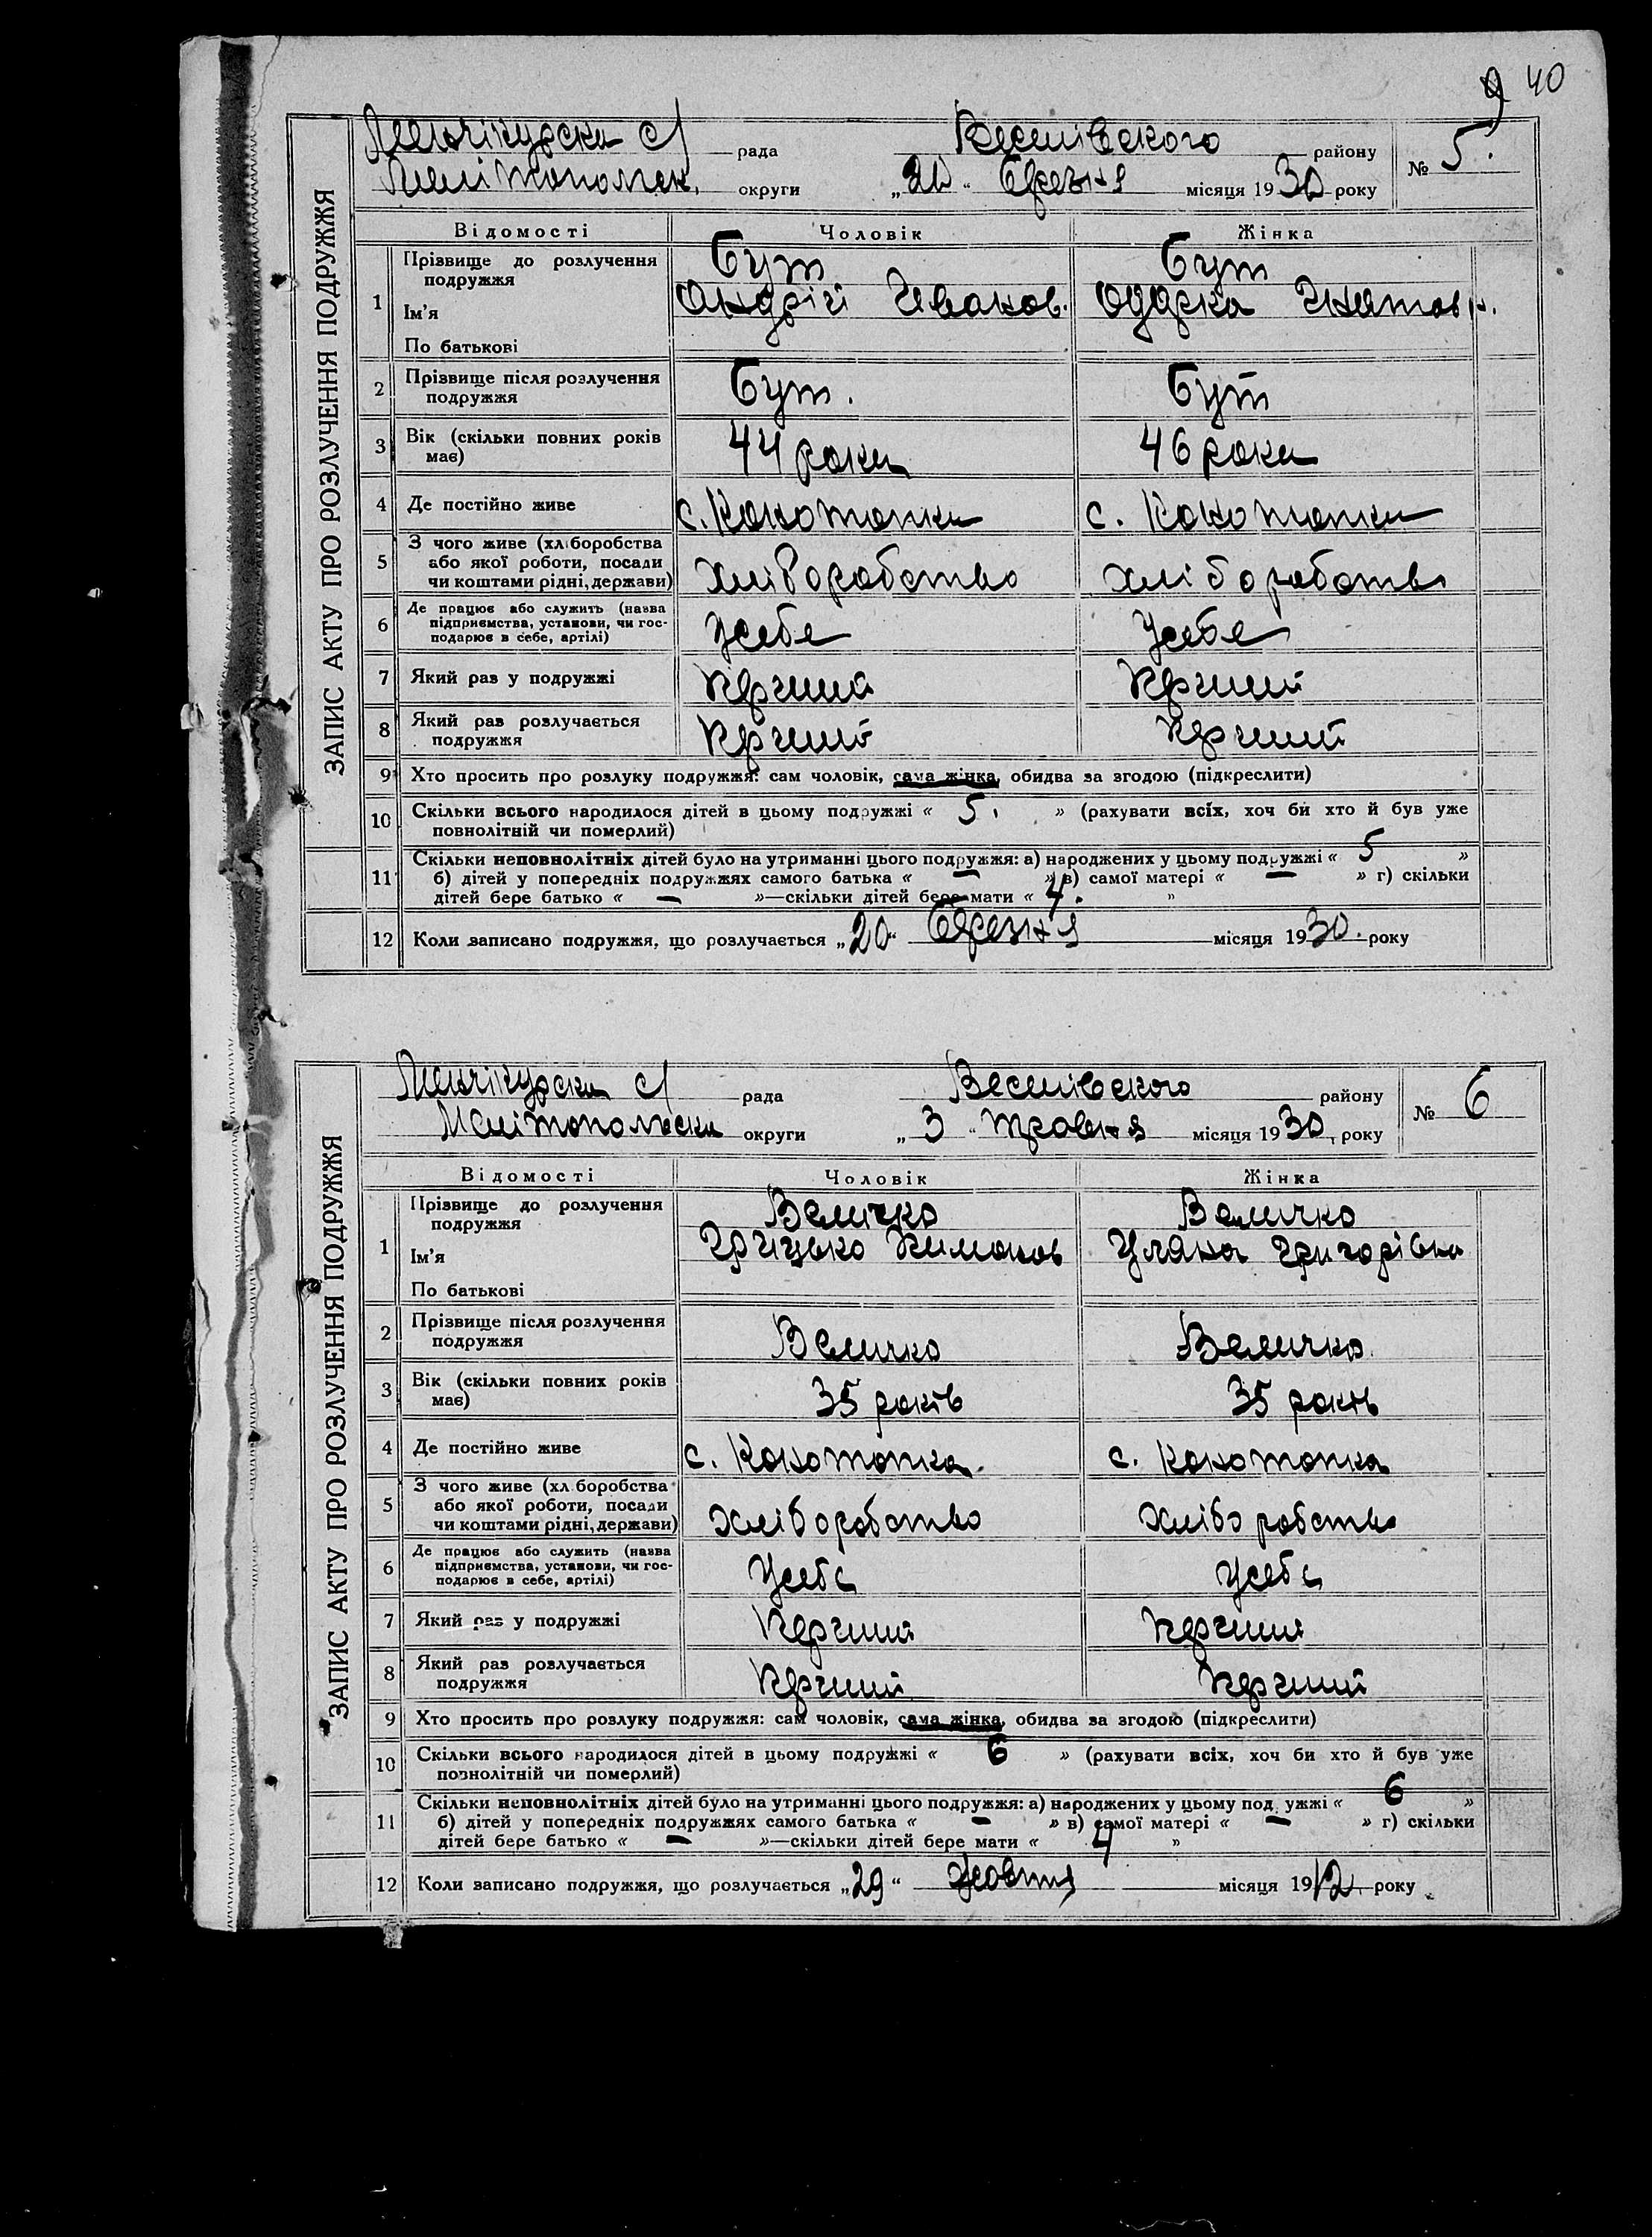 9 40
ЗАПИС АКТУ ПРО РОЗЛУЧЕННЯ ПОДРУЖЖЯ
Менчікурска с/ рада Веселівского району № 5.
Мелітопольск. округи „20“ березня місяця 1930 року
Відомості Чоловік Жінка
1 Прізвище до розлучення подружжя Бут Бут
Ім'я Андрій Іванов. Одарка Ігнатовн.
По батькові
2 Прізвище після розлучення подружжя Бут. Бут
3 Вік (скільки повних років має) 44 роки 46 роки
4 Де постійно живе с. Конотопка с. Конотопка
5 З чого живе (хліборобства
або якої роботи, посади
чи коштами рідні, держави) хліборобство хліборобство
6 Де працює або служить (назва
підприємства, установи, чи гос-
подарює в себе, артілі) Усебе Усебе
7 Який раз у подружжі Перший Перший
8 Який раз розлучається подружжя Перший Перший
9 Хто просить про розлуку подружжя: сам чоловік, сама жінка, обидва за згодою (підкреслити)
10 Скільки всього народилося дітей в цьому подружжі « 5. » (рахувати всіх, хоч би хто й був уже
повнолітній чи померлий)
11 Скільки неповнолітніх дітей було на утриманні цього подружжя: а) народжених у цьому подружжі « 5 »
б) дітей у попередніх подружжях самого батька « — » в) самої матері « — » г) скільки
дітей бере батько « — »—скільки дітей бере мати « 4. »
12 Коли записано подружжя, що розлучається „20“ березня місяця 1930. року
ЗАПИС АКТУ ПРО РОЗЛУЧЕННЯ ПОДРУЖЖЯ
Менчікурска с/ рада Веселівского району № 6
Мелітопольска округи „3“ травня місяця 1930 року
Відомості Чоловік Жінка
1 Прізвище до розлучення подружжя Величко Величко
Ім'я Грицько Уляна Григорівна
По батькові
2 Прізвище після розлучення подружжя Величко Величко
3 Вік (скільки повних років має) 35 років 35 років
4 Де постійно живе с. Конотопка. с. Конотопка
5 З чого живе (хліборобства
або якої роботи, посади
чи коштами рідні, держави) хліборобство хліборобство
6 Де працює або служить (назва
підприємства, установи, чи гос-
подарює в себе, артілі) Усебе Усебе
7 Який раз у подружжі Перший Перший
8 Який раз розлучається подружжя Перший Перший
9 Хто просить про розлуку подружжя: сам чоловік, сама жінка, обидва за згодою (підкреслити)
10 Скільки всього народилося дітей в цьому подружжі « 6 » (рахувати всіх, хоч би хто й був уже
повнолітній чи померлий)
11 Скільки неповнолітніх дітей було на утриманні цього подружжя: а) народжених у цьому подружжі « 6 »
б) дітей у попередніх подружжях самого батька « — » в) самої матері « — » г) скільки
дітей бере батько « — »—скільки дітей бере мати « 4 »
12 Коли записано подружжя, що розлучається „29“ жовтня місяця 1912. року